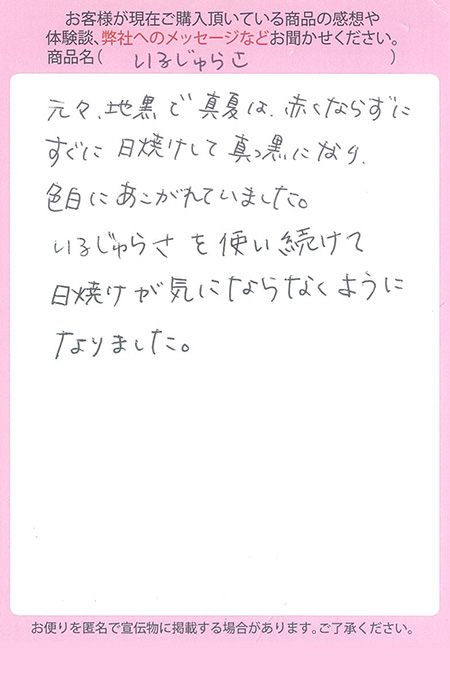 お客様が現在ご購入頂いている商品の感想や
体験談、弊社へのメッセージなどお聞かせください。
商品名( いるじゅらさ )
元々、地黒で真夏は、赤くならずに
すぐに日焼けして真っ黒になり、
色白にあこがれていました。
いるじゅらさを使い続けて
日焼けが気にならなくように
なりました。
お便りを匿名で宣伝物に掲載する場合があります。ご了承ください。